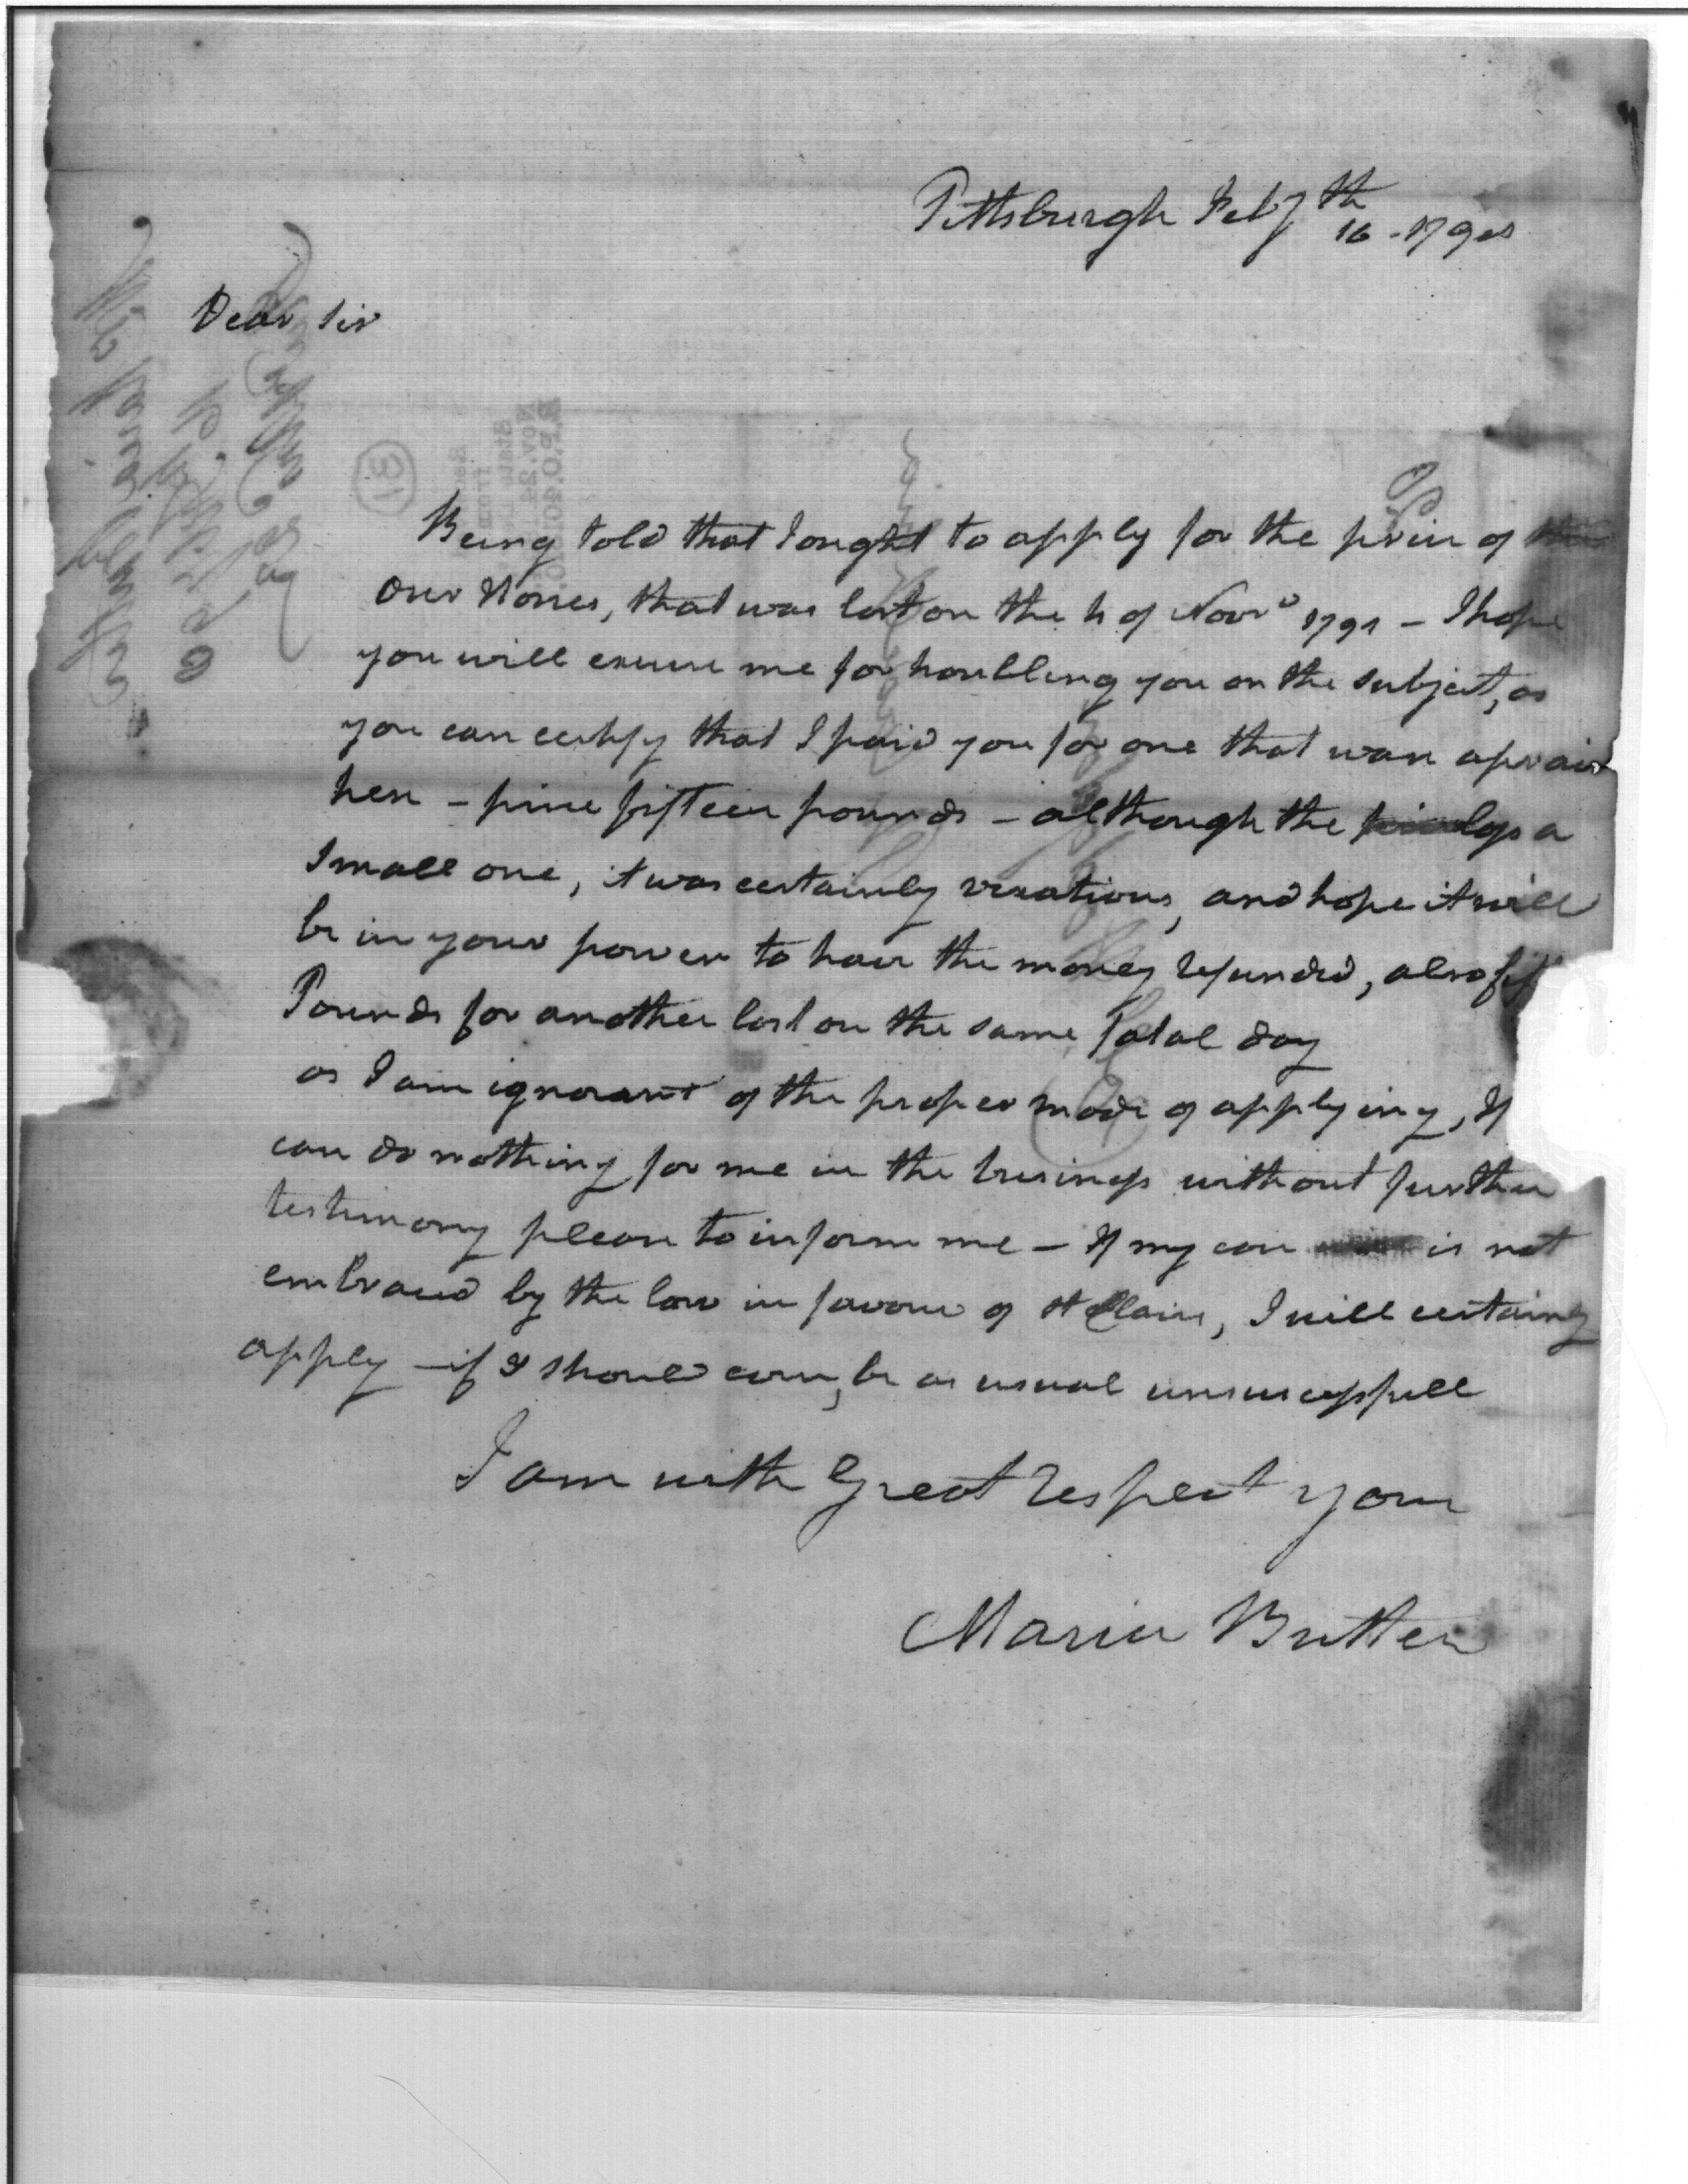 Pittsburgh Feby 16th 179
Dear Sir
Being told that I ought to apply for the price of
our Horses, that was lost on the 4 of Novr 1791 - I hope
you will excuse me for troubling you on the subject, as
you can certify that I paid you for one that was
here - price fifteen pounds - although the loss a
small one, it was certainly vexatious, and hope it will
be in your power to have the money refunded, also
Pounds for another lost on the same fatal day
as I am ignorant of the proper mode of applying, If
can do nothing for me in the business without further
testimony please to inform me - If my case is not
embraced by the law in favour of St Clair, I will certainly
apply - if I should even, be as usual unsuccessfull
I am with Great respect your
Maria Butler